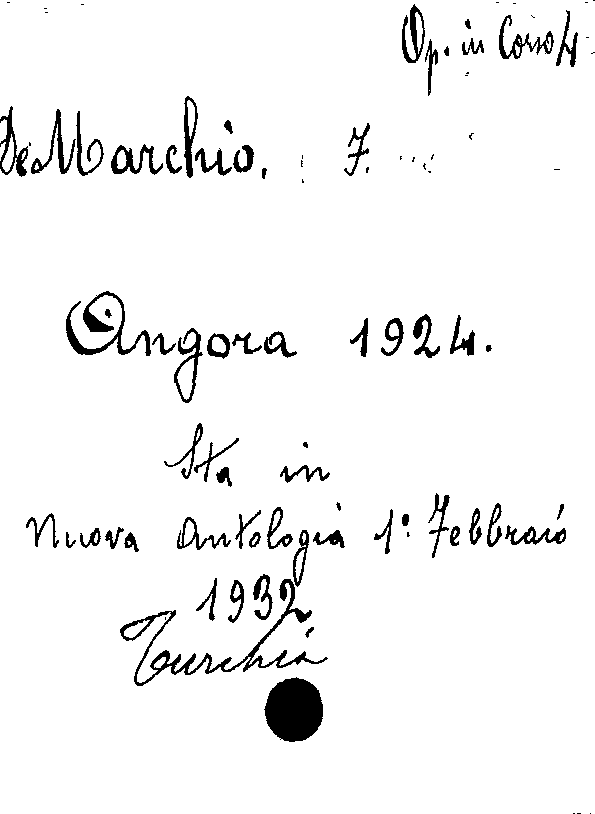 Op. in Corso 4
De Marchio, F.
Angora 1924.
Sta in
Nuova Antologia 1° Febbraio
1932
Turchia